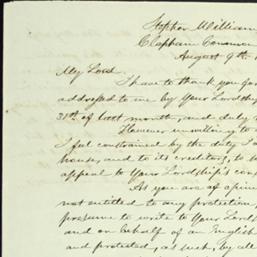 Stephen William
Clapham Common
August 9th 1
My Lord.
I have to thank you for
addressed to me by Your Lordship
31st of last month, and duly
However unwilling to
I feel constrained by the duty I
house, and to its creditors, to
appeal to Your Lordship's con
As you are of opin
not entitled to any protection,
presume to write to Your Lord
and on behalf of an English
and protested, as such, by all